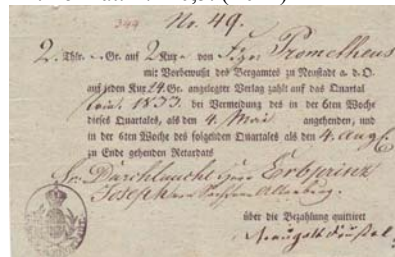 344 Nr. 49.
2. Thlr. – Gr. auf 2 Kux – von Prometheus
mit Vorbewußt des Bergamtes zu Neustadt a. d. O.
auf jeden Kux 24. Gr. angelegter Verlag zahlt auf das Quartal
1833. bei Vermeidung des in der 6ten Woche
dieses Quartales, als den 4. Mai angehenden, und
in der 6ten Woche des folgenden Quartales als den 4. Aug.
zu Ende gehenden Retardats
Sr. Durchlaucht Herr Erbprinz
Joseph von Sachsen Altenburg.
über die Bezahlung quittiret